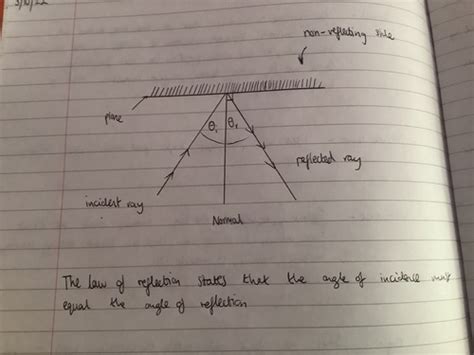 3/10/22
non-reflecting side
plane
θi θr
reflected ray
incident ray
Normal
The law of reflection states that the angle of incidence must
equal the angle of reflection